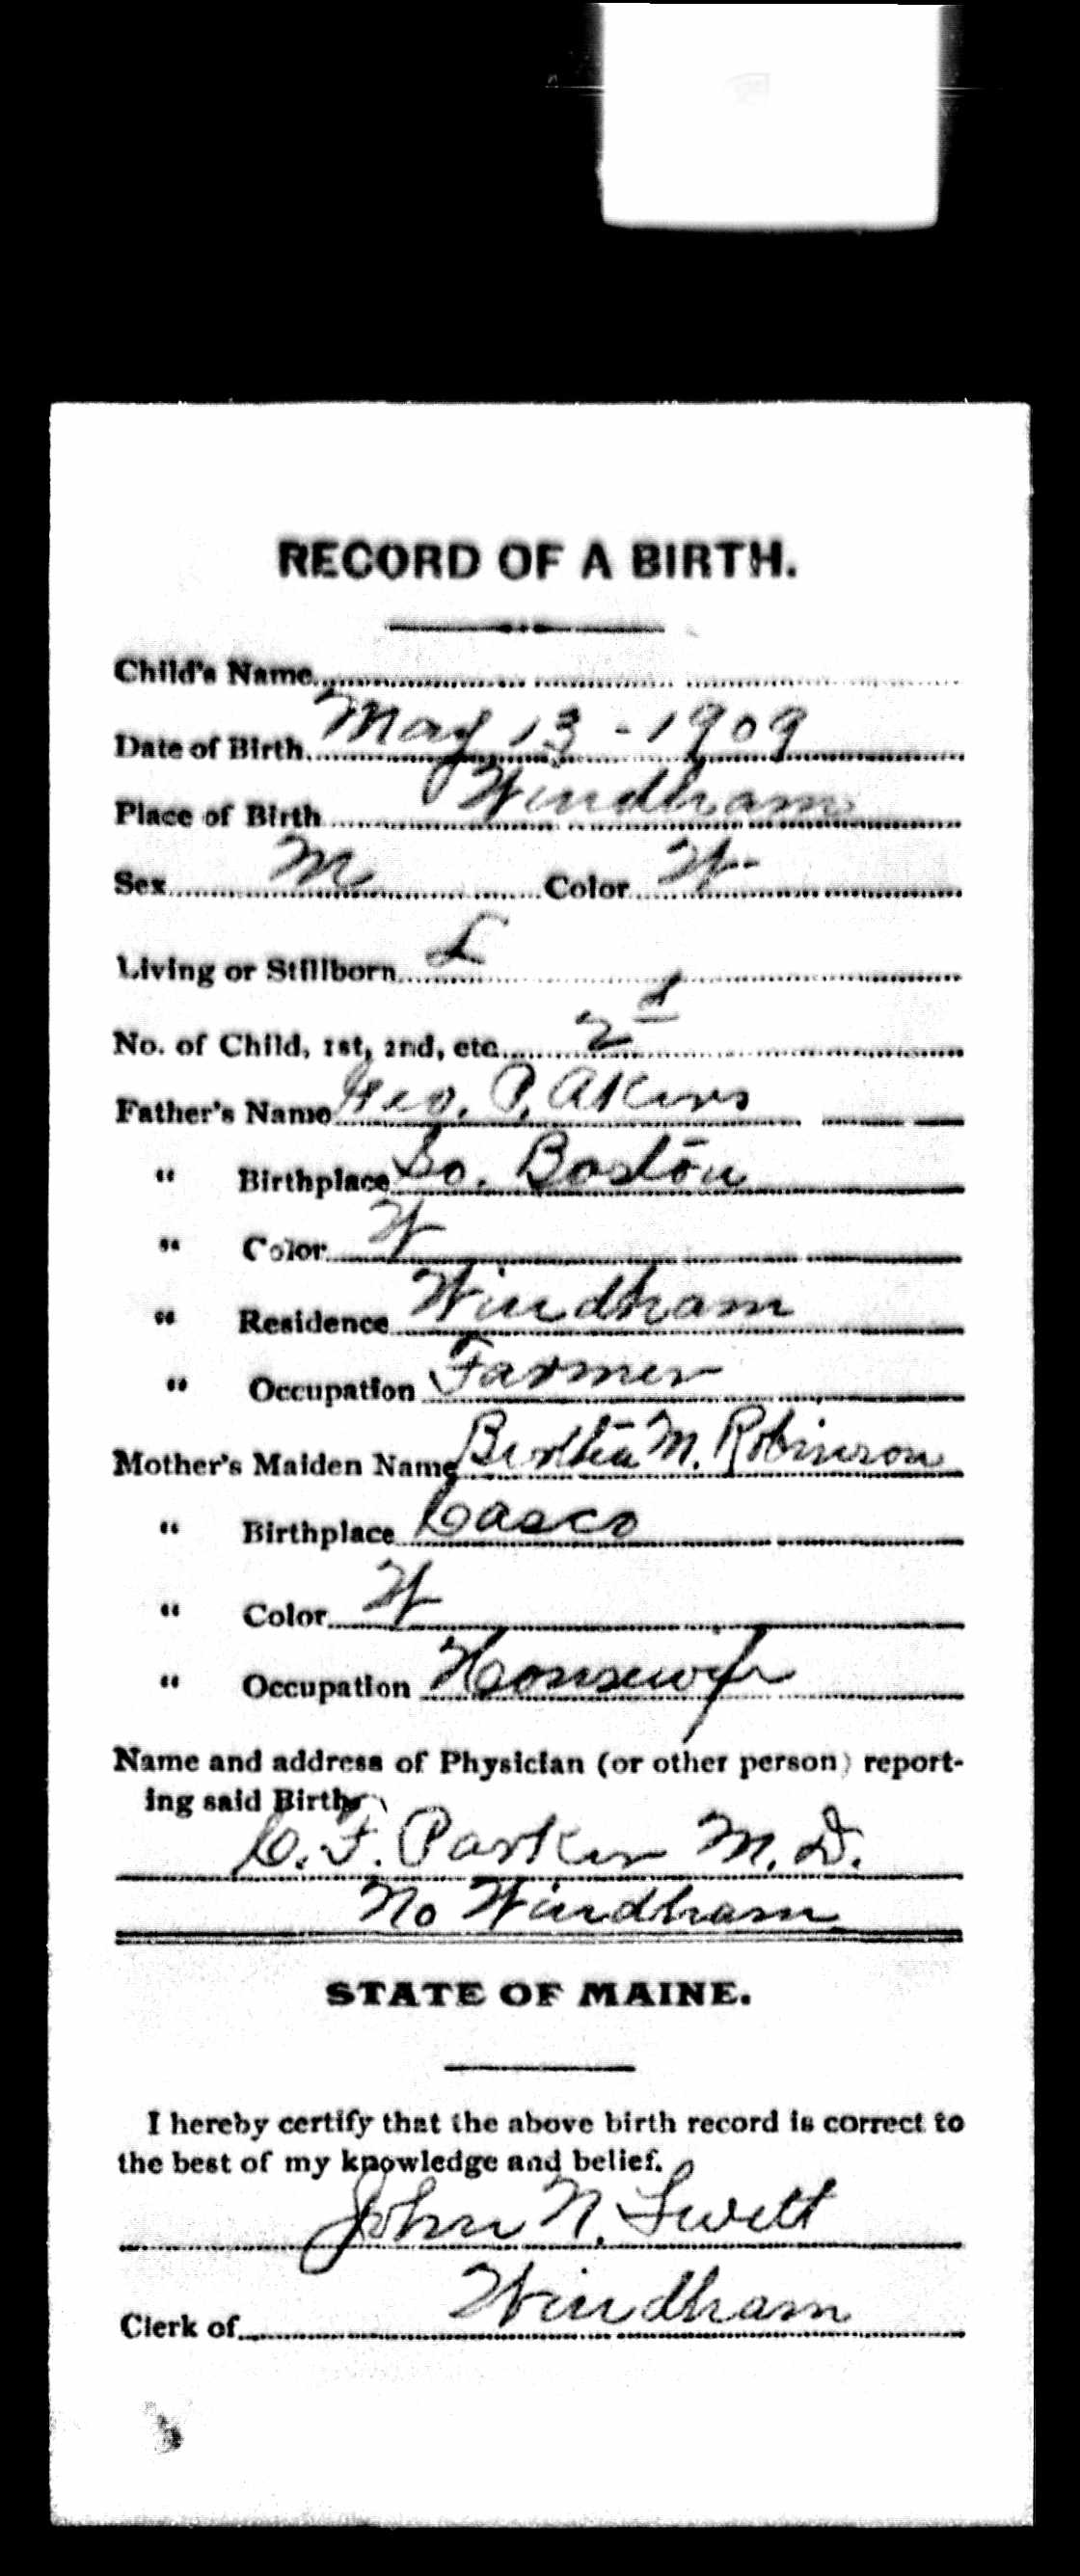 RECORD OF A BIRTH.
Child's Name
Date of Birth May 13 - 1909
Place of Birth Windham
Sex M Color W
Living or Stillborn L
No. of Child, 1st, 2nd, etc. 2d
Father's Name Geo. P. Akins
" Birthplace So. Boston
" Color W
" Residence Windham
" Occupation Farmer
Mother's Maiden Name Bertha M. Robinson
" Birthplace Casco
" Color W
" Occupation Housewife
Name and address of Physician (or other person) report-
ing said Birth
C. F. Parker M. D.
No Windham
STATE OF MAINE.
I hereby certify that the above birth record is correct to
the best of my knowledge and belief.
John N. Swett
Clerk of Windham